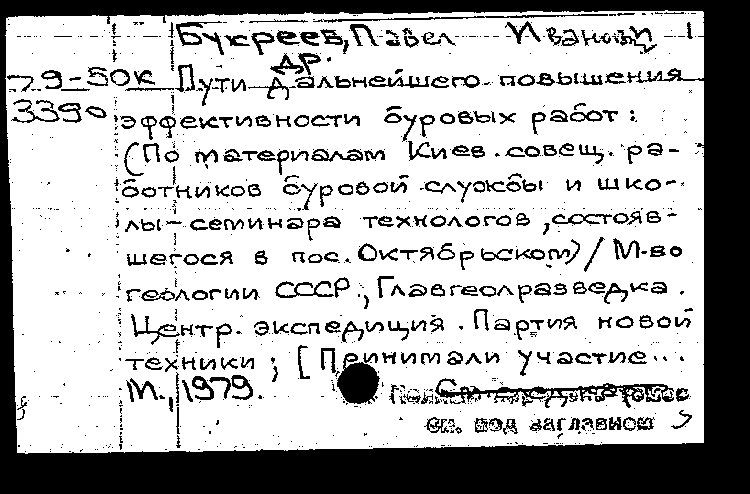 Букреев, Павел Иванович 1
др.
79-50к Пути дальнейшего повышения
3390 эффективности буровых работ:
(По материалам Киев. совещ. ра-
ботников буровой службы и шко-
лы-семинара технологов, состояв-
шегося в пос. Октябрьском) / М-во
геологии СССР, Главгеолразведка.
Центр. экспедиция. Партия новой
техники; [Принимали участие...
М., 1979.
см. под заглавием